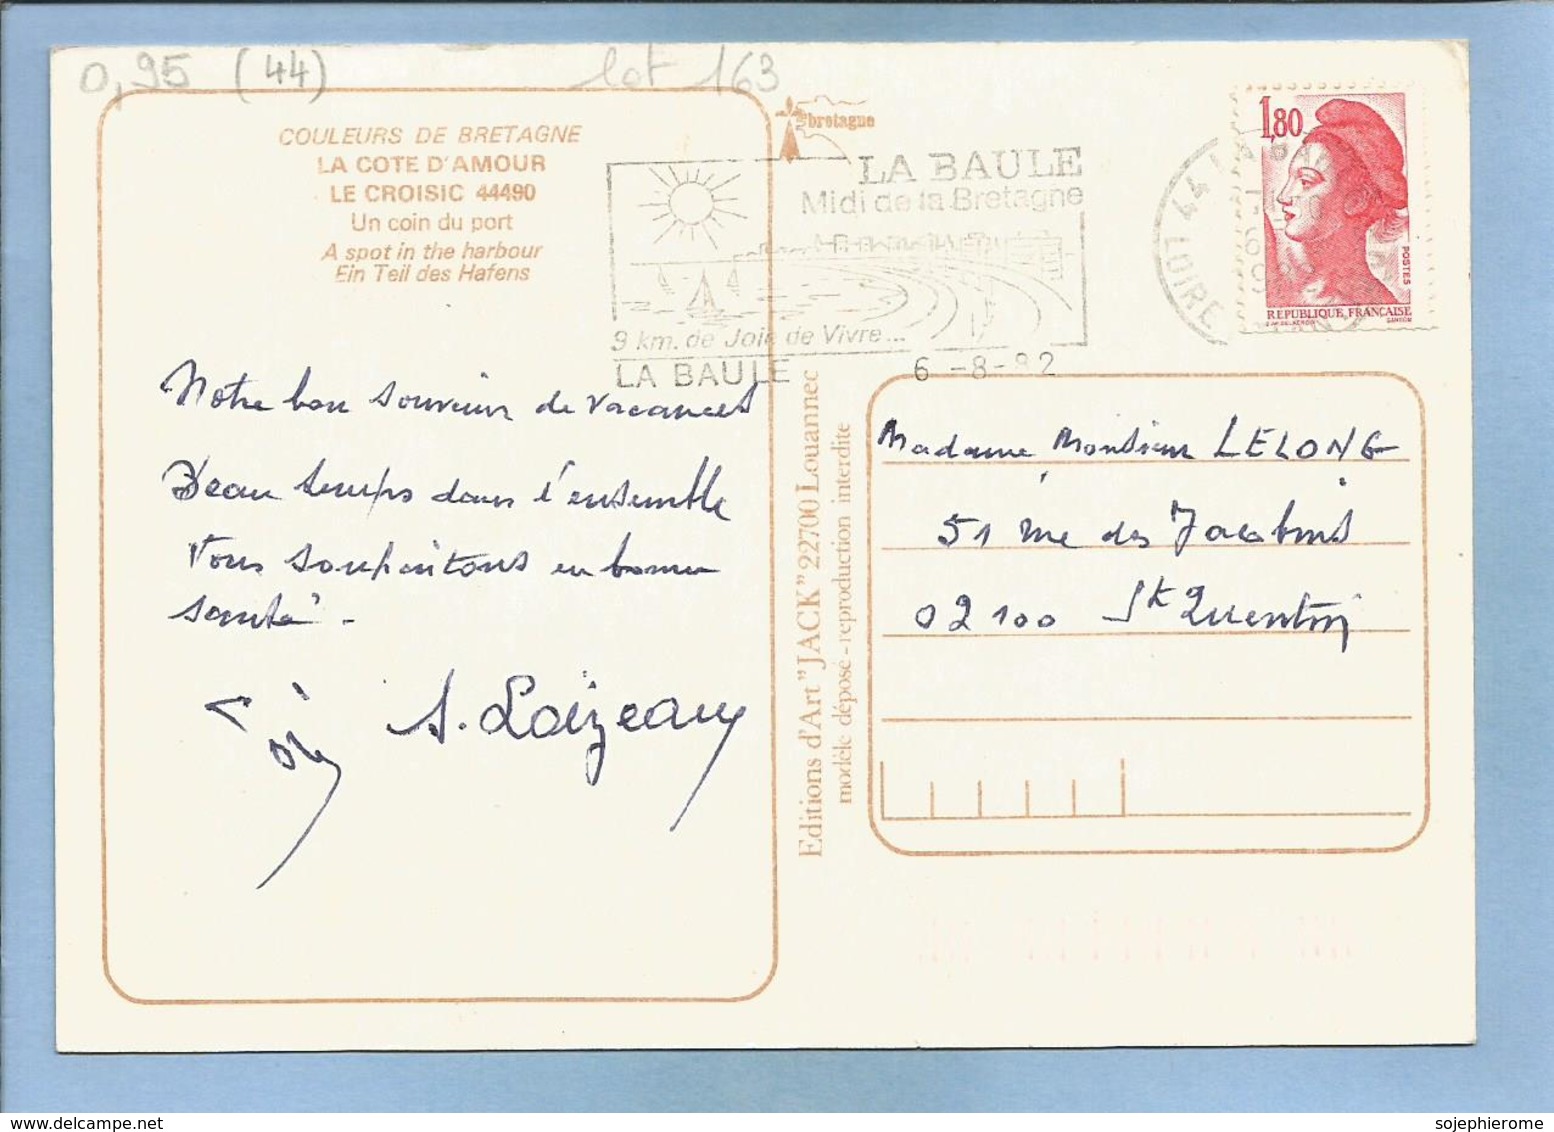 0,95 (44)
lot 163
COULEURS DE BRETAGNE
LA COTE D'AMOUR
LE CROISIC 44490
Un coin du port
A spot in the harbour
Ein Teil des Hafens
bretagne
LA BAULE
Midi de la Bretagne
9 km. de Joie de Vivre...
LA BAULE
6 -8-82
44 LA BAULE
LOIRE
1,80
POSTES
REPUBLIQUE FRANÇAISE
Notre bon souvenir de vacances
Beau temps dans l'ensemble
Vous souhaitons en bonne
santé -
A. Loizeau
Editions d'Art "JACK" 22700 Louannec
modèle déposé - reproduction interdite
Madame Monsieur LELONG
51 rue des Jacobins
02100 St Quentin
www.delcampe.net
sojephierome